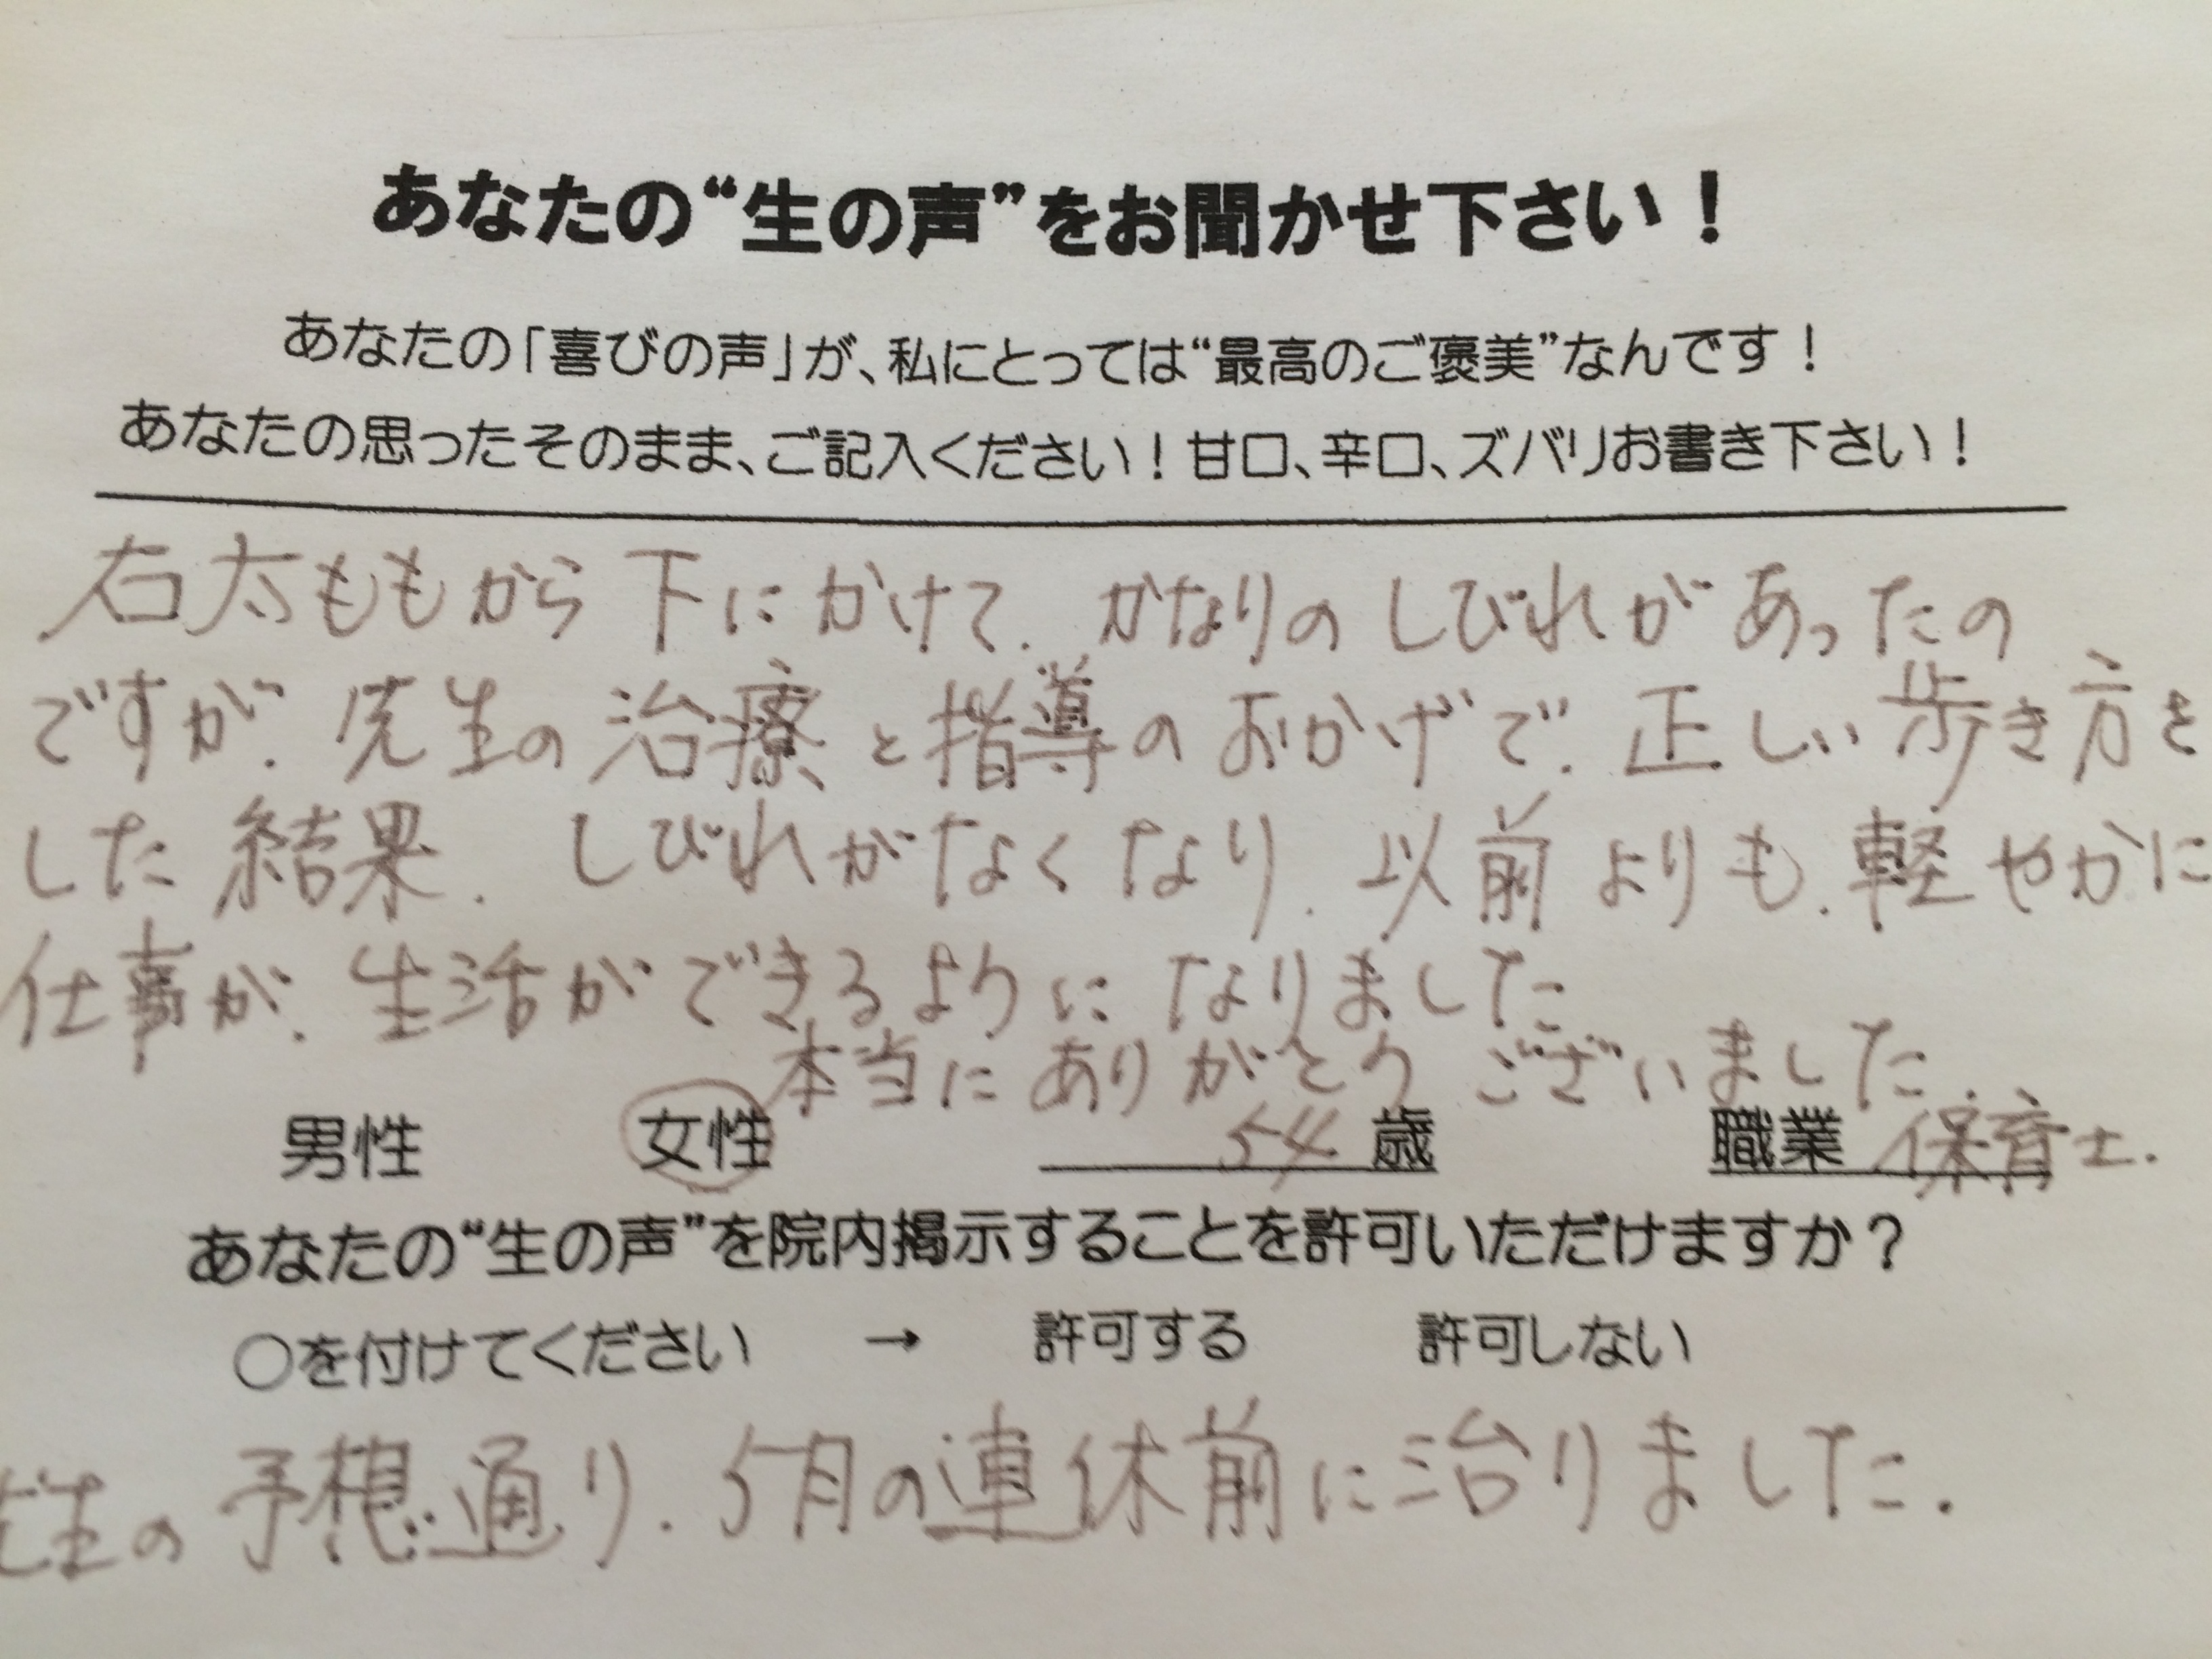 あなたの“生の声”をお聞かせ下さい！
あなたの「喜びの声」が、私にとっては“最高のご褒美”なんです！
あなたの思ったそのまま、ご記入ください！甘口、辛口、ズバリお書き下さい！
右太ももから下にかけて、かなりのしびれがあったの
ですが、先生の治療と指導のおかげで、正しい歩き方を
した結果、しびれがなくなり、以前よりも、軽やかに
仕事が、生活ができるようになりました
本当にありがとうございました。
男性 女性 54 歳 職業 保育士.
あなたの“生の声”を院内掲示することを許可いただけますか？
○を付けてください → 許可する 許可しない
先生の予想通り、5月の連休前に治りました.